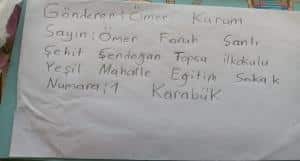 Gönderen: Ömer Kurum
Sayın: Ömer Faruk Şanlı
Şehit Şendoğan Topsa ilkokulu
Yeşil Mahalle Eğitim Sokak
Numara: 1 Karabük